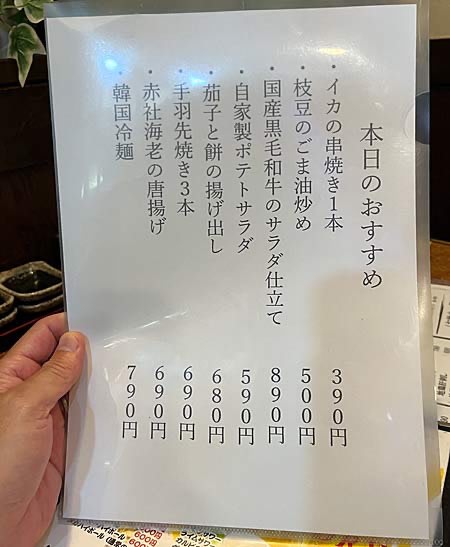 本日のおすすめ
・イカの串焼き1本 390円
・枝豆のごま油炒め 500円
・国産黒毛和牛のサラダ仕立て 890円
・自家製ポテトサラダ 590円
・茄子と餅の揚げ出し 680円
・手羽先焼き3本 690円
・赤社海老の唐揚げ 690円
・韓国冷麺 790円